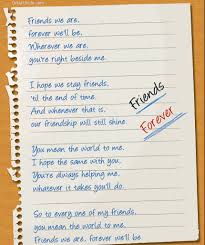 Friends we are,
forever we'll be.
Wherever we are,
you're right beside me.
I hope we stay friends,
'til the end of time.
And whenever that is,
our friendship will still shine.
Friends
Forever
You mean the world to me.
I hope the same with you.
You're always helping me,
whatever it takes you'll do.
So to every one of my friends,
you mean the world to me.
Friends we are, forever we'll be.